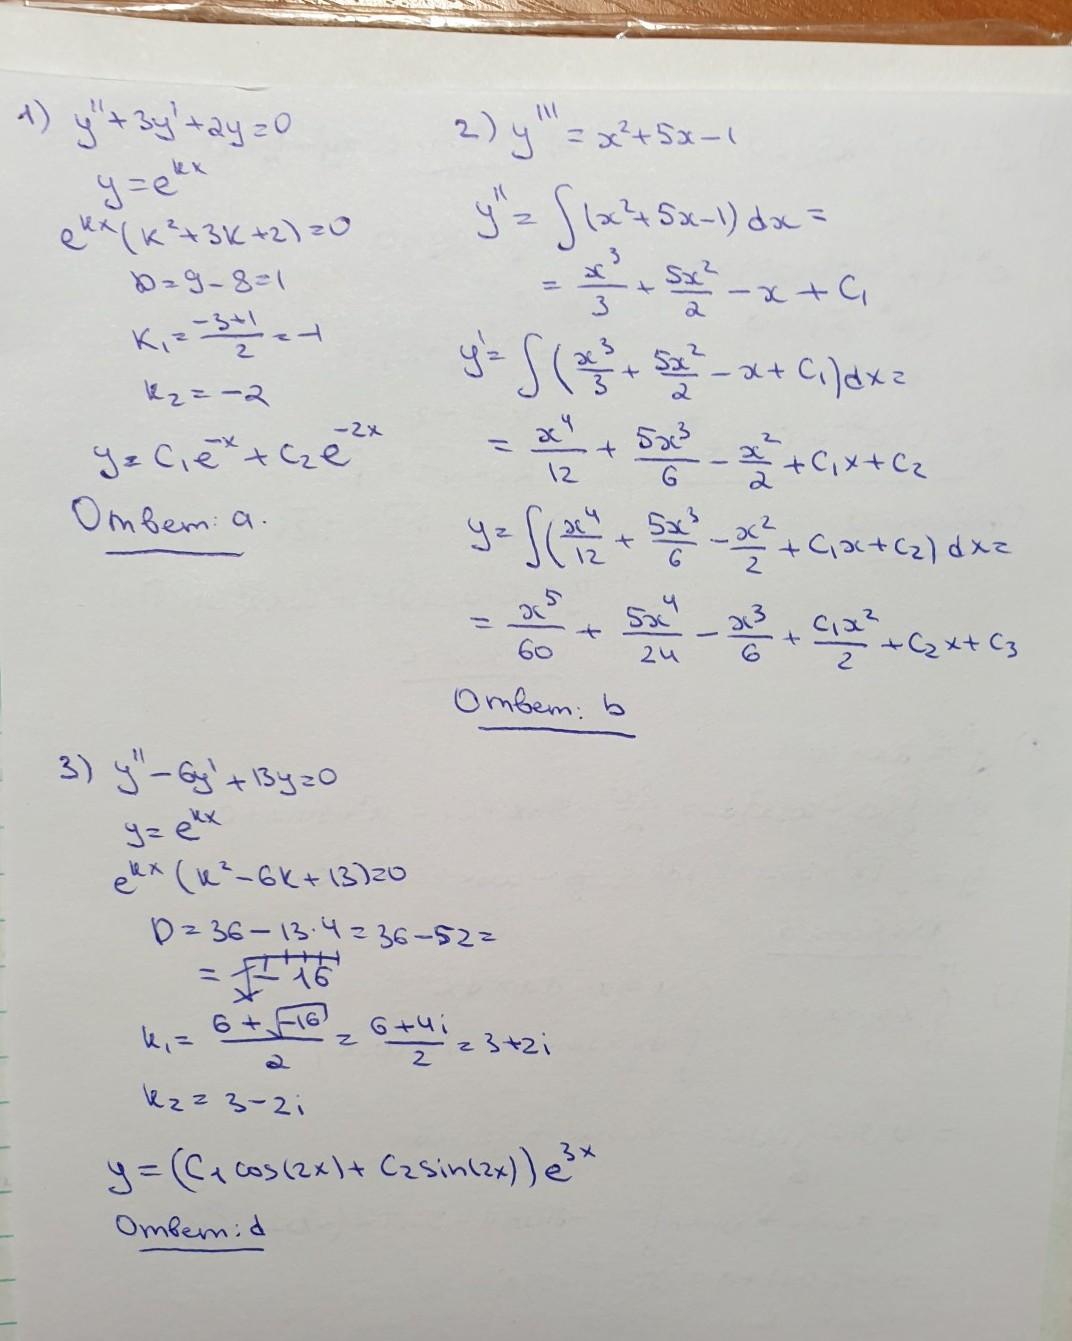 1) y'' + 3y' + 2y = 0
y = e^{kx}
e^{kx}(k² + 3k + 2) = 0
D = 9 - 8 = 1
K₁ = \frac{-3+1}{2} = -1
k₂ = -2
y = C₁e^{-x} + C₂e^{-2x}
Ответ: a.
2) y''' = x² + 5x - 1
y'' = ∫(x² + 5x - 1) dx =
= \frac{x³}{3} + \frac{5x²}{2} - x + C₁
y' = ∫(\frac{x³}{3} + \frac{5x²}{2} - x + C₁) dx =
= \frac{x⁴}{12} + \frac{5x³}{6} - \frac{x²}{2} + C₁x + C₂
y = ∫(\frac{x⁴}{12} + \frac{5x³}{6} - \frac{x²}{2} + C₁x + C₂) dx =
= \frac{x⁵}{60} + \frac{5x⁴}{24} - \frac{x³}{6} + \frac{C₁x²}{2} + C₂x + C₃
Ответ: b
3) y'' - 6y' + 13y = 0
y = e^{kx}
e^{kx}(k² - 6k + 13) = 0
D = 36 - 13·4 = 36 - 52 =
= -16
k₁ = \frac{6 + √{-16}}{2} = \frac{6 + 4i}{2} = 3 + 2i
k₂ = 3 - 2i
y = (C₁ cos(2x) + C₂ sin(2x)) e^{3x}
Ответ: d